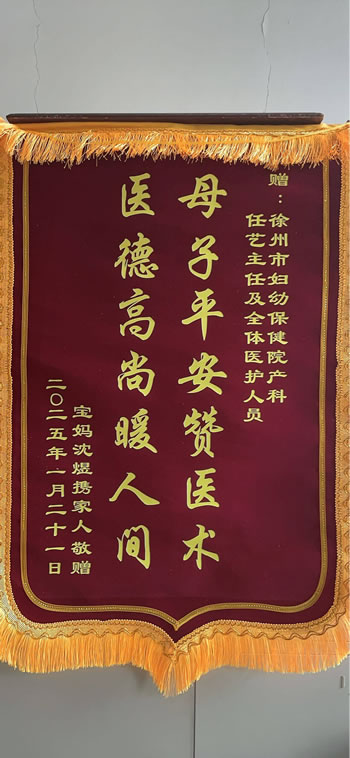 赠：徐州市妇幼保健院产科
任艺主任及全体医护人员
母子平安赞医术
医德高尚暖人间
宝妈沈煜携家人敬赠
二〇二五年一月二十一日